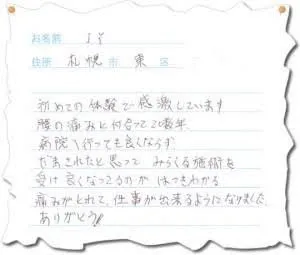 お名前 I Y
住所 札幌 市 東 区
初めての体験で感激しています
腰の痛みと付合って20数年、
病院へ行っても良くならず
だまされたと思って みらくる施術を
受け良くなってるのが はっきりわかる
痛みがとれて、仕事が出来るようになりました。
ありがとう!!